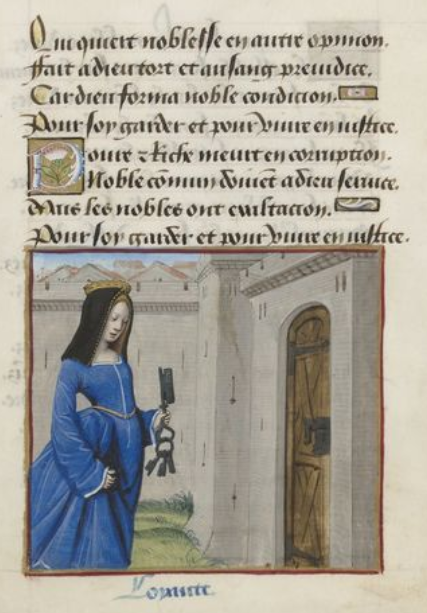 Qui quiert noblesse en autre opinion.
Fait a dieu tort et au sang preiudice.
Car dieu forma noble condicion.
Pour foy garder et pour viure en iustice.
Poure ⁊ Riche meurt en corruption.
Noble cōmun doiuent a dieu seruice.
Mais les nobles ont exaltacion.
Pour foy garder et pour viure en iustice.
Loyaute